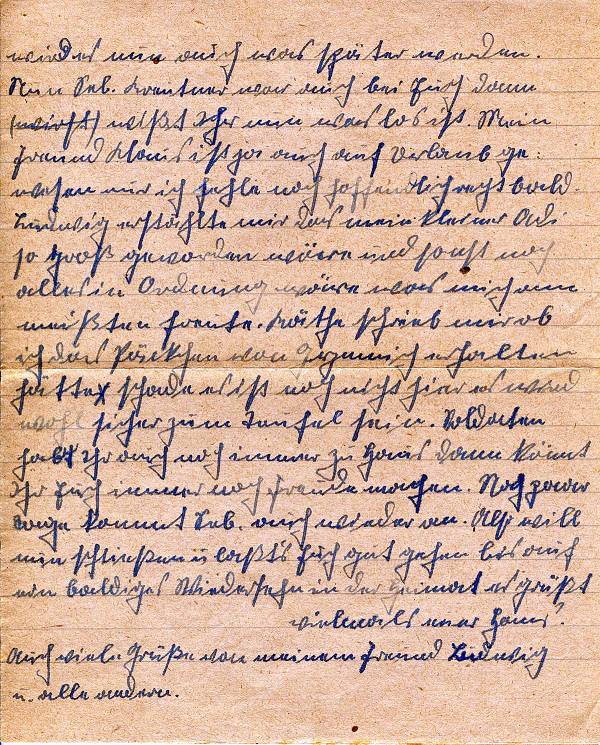 wird es nun auch was später werden.
Nun Seb. Kreutner war auch bei Euch dann
wißt Ihr nun was los ist. Mein
Freund Klaus ist ja auch auf Urlaub ge-
wesen nur ich fehle noch hoffendlich recht bald.
Ludwig erzählte mir das mein kleiner Adi
so groß geworden wäre und sonst noch
alles in Ordnung wäre was mich am
meißten freute. Käthe schrieb mir ob
ich das Päckchen von erhalten
hätte schade es ist noch nicht hier es wird
wohl sicher zum Teufel sein. Soldaten
habt Ihr auch noch immer zu Haus dann könnt
Ihr Euch immer noch Freude machen. Noch paar
Tage kommt Seb. auch wieder an. Also will
nun schließen u laßt's Euch gut gehen bis auf
ein baldiges Wiedersehn in der Heimat es grüßt
vielmals euer Hans
Auch viele Grüße von meinem Freund Ludwig
u. alle andern.